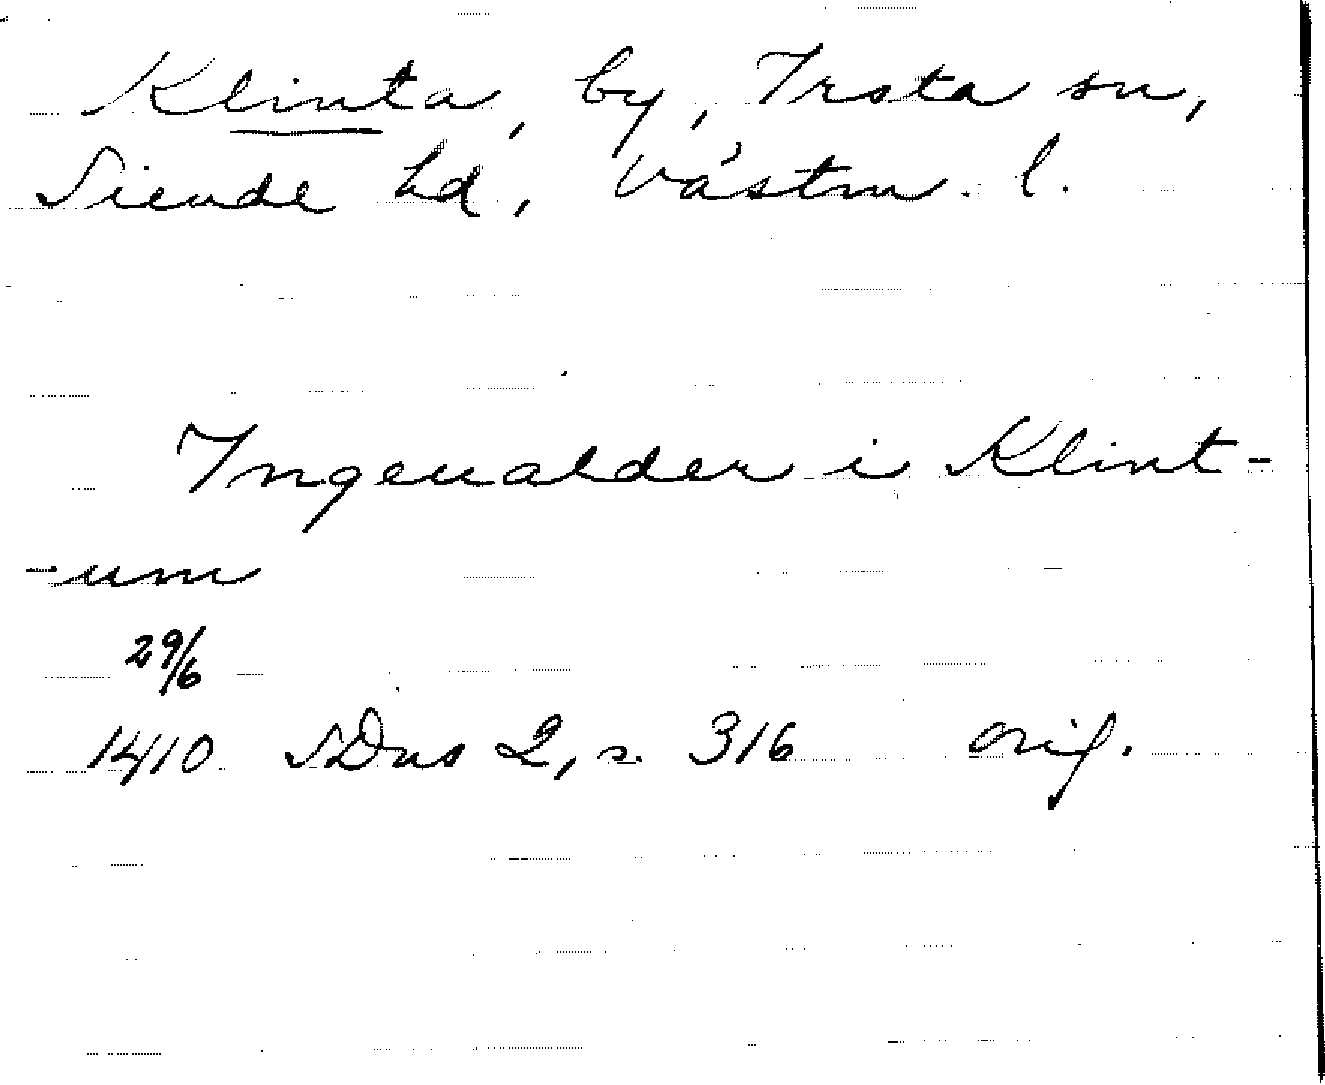 Klinta, by, Irsta sn,
Siende hd, Västm. l.
Ingeualder i Klint-
-um
29/6
1410 SDns 2, s. 316 orig.